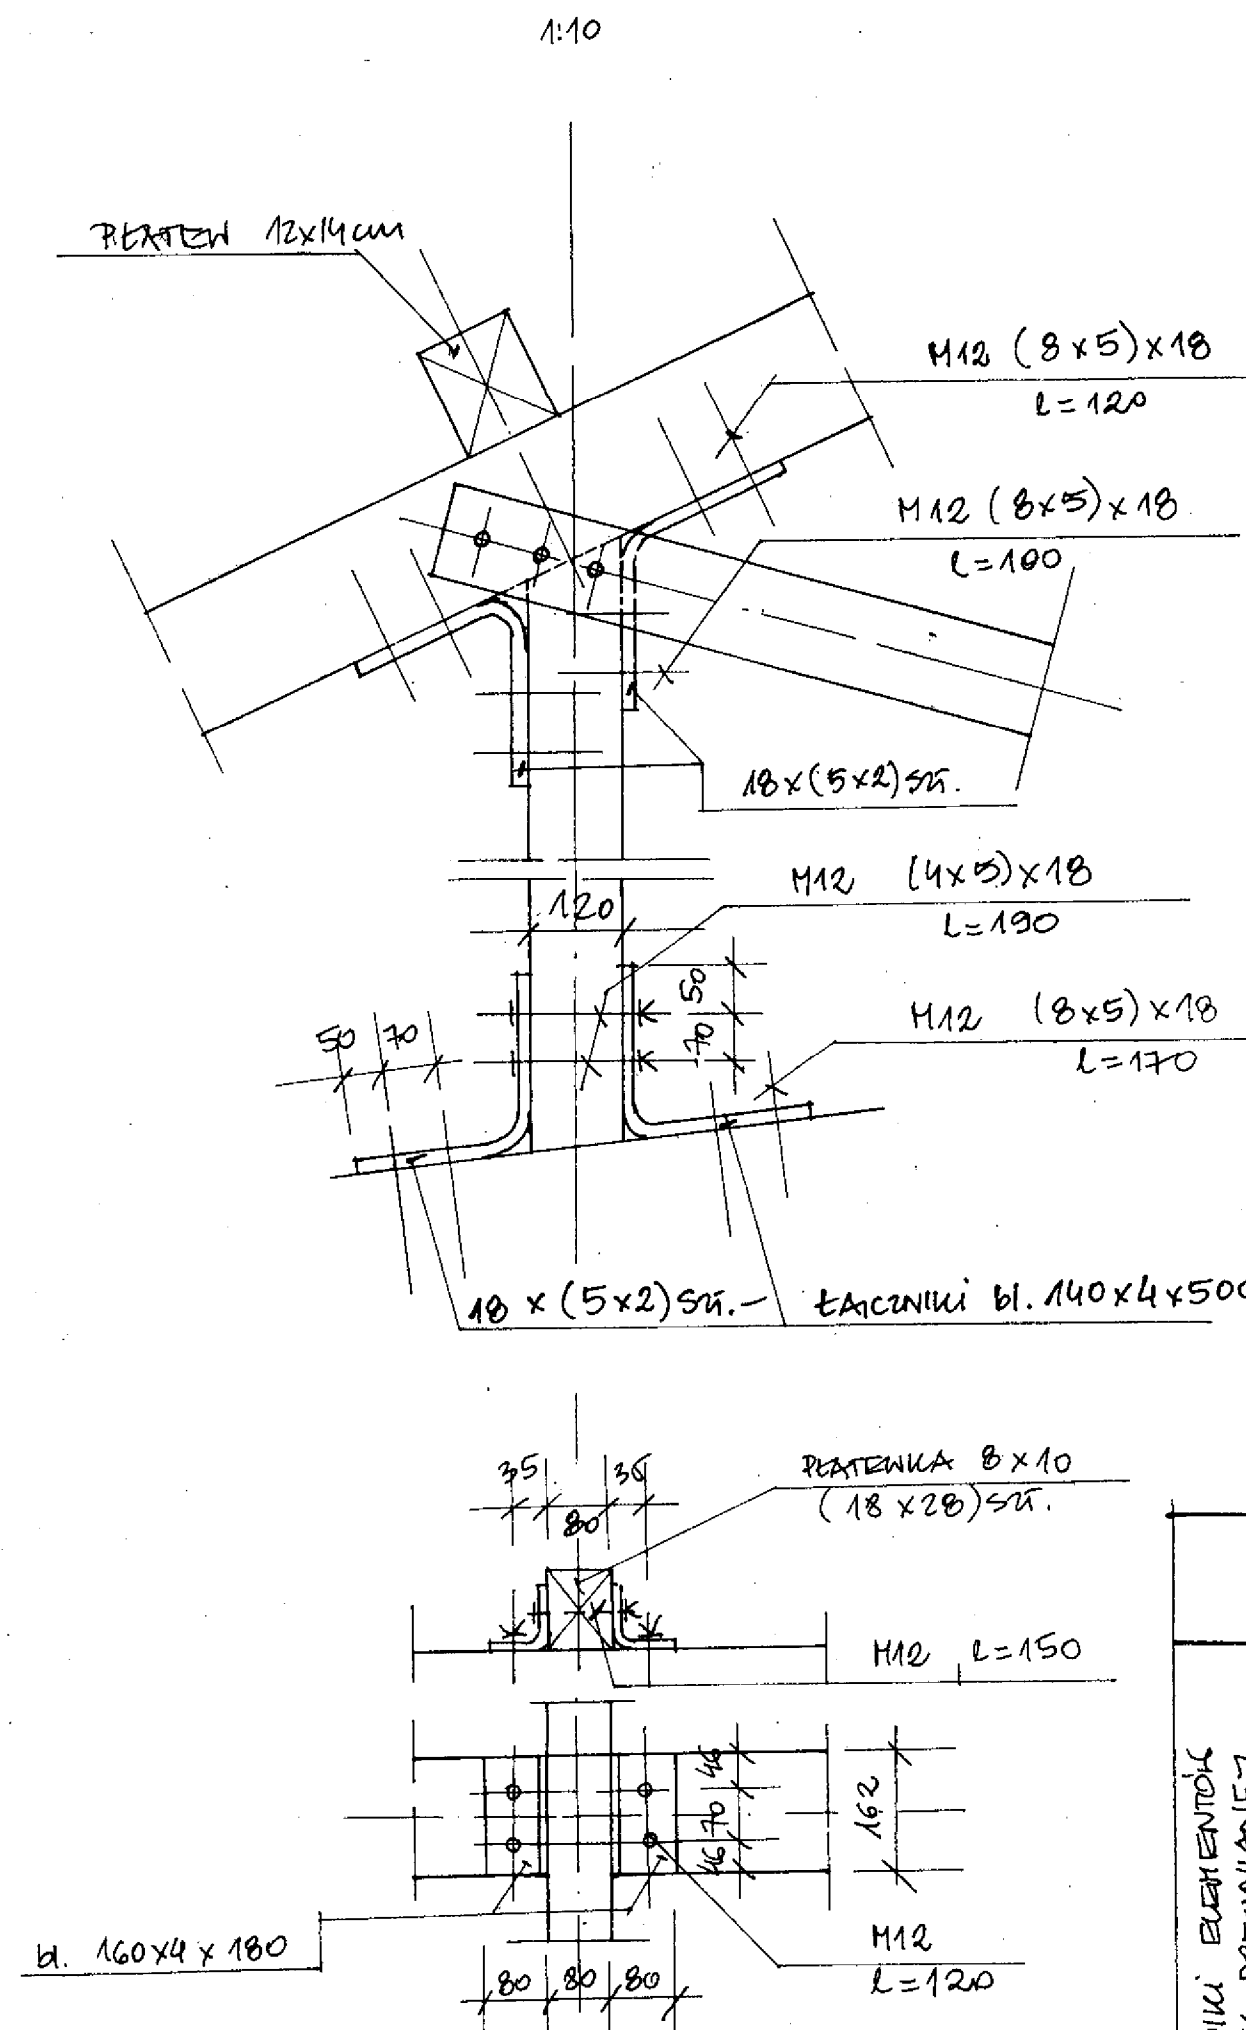 1:10
PŁATEW 12x14cm
M12 (8x5)x18
l=120
M12 (8x5)x18
l=100
18x(5x2)szt.
M12 (4x5)x18
L=190
120
50
70
M12 (8x5)x18
l=170
50 70
18 x (5x2) szt.- ŁĄCZNIKI bl. 140x4x500
35 35
80
PŁATEWKA 8x10
(18x28)szt.
M12 l=150
46
70
46
162
bl. 160x4x180
M12
l=120
80 80 80
ELEMENTÓW